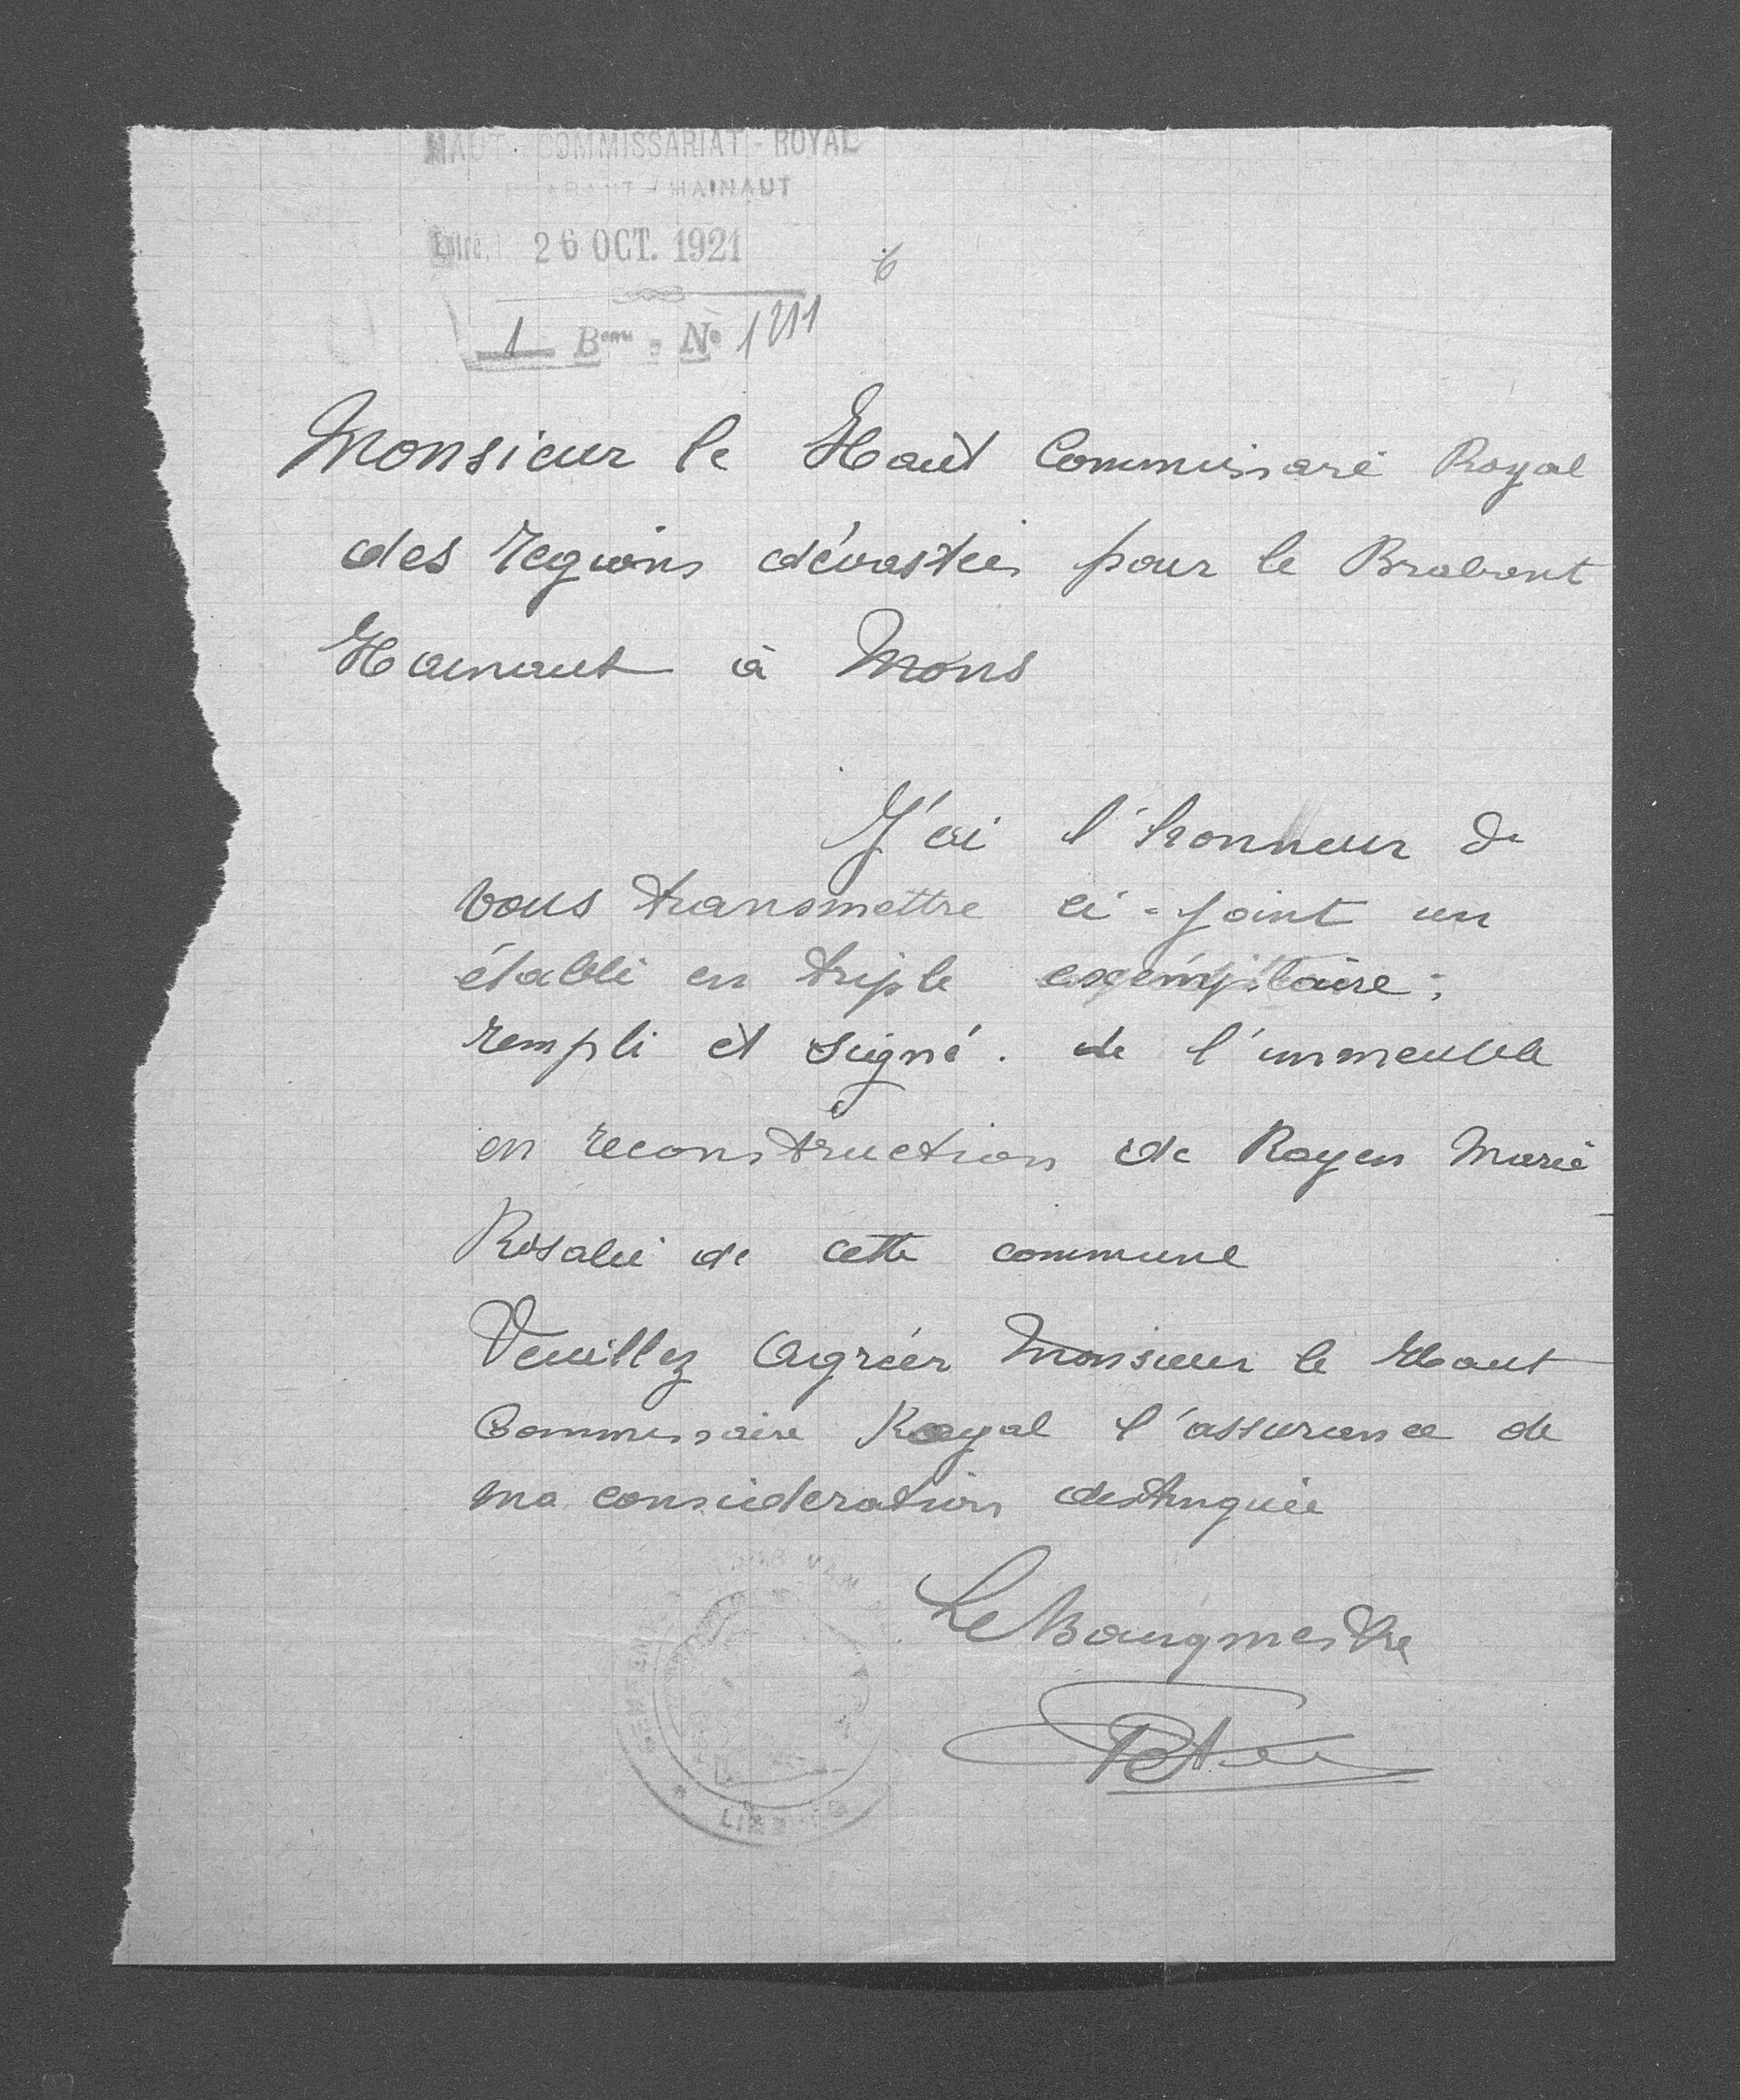 HAUT-COMMISSARIAT-ROYAL
BRABANT-HAINAUT
Entré, 26 OCT. 1921
1 Beau. No 1211
Monsieur le Haut Commissaire Royal
des regions dévastées pour le Brabant
Hainaut à Mons
J'ai l'honneur de
vous transmettre ci-joint un
établi en triple exemplaire;
rempli et signé. de l'immeuble
en reconstruction de Rayen Marie
Rosalie de cette commune
Veuillez Agréer Monsieur le Haut
Commissaire Royal l'assurance de
ma consideration distinguée
Le Bourgmestre